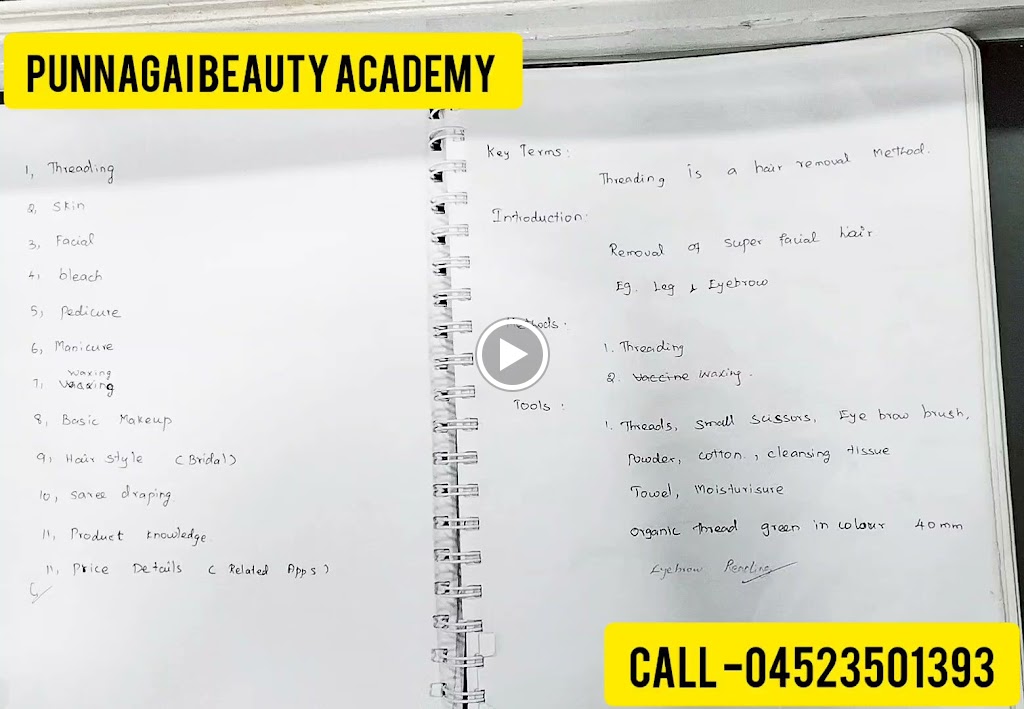 PUNNAGAI BEAUTY ACADEMY
1, Threading
2, Skin
3, Facial
4, bleach
5, Pedicure
6, Manicure
waxing
7,
8, Basic Makeup
9, Hair style (Bridal)
10, saree draping
11, Product knowledge.
11, Price Details ( Related Apps )
Key Terms:
Threading is a hair removal Method.
Introduction:
Removal of super facial hair
Eg. Leg & Eyebrow
Methods:
1. Threading
2. Vaccine Waxing.
Tools:
1. Threads, small scissors, Eye brow brush,
Powder, cotton., cleansing tissue
Towel, Moisturisure
Organic thread green in colour 40mm
Eyebrow
CALL -04523501393